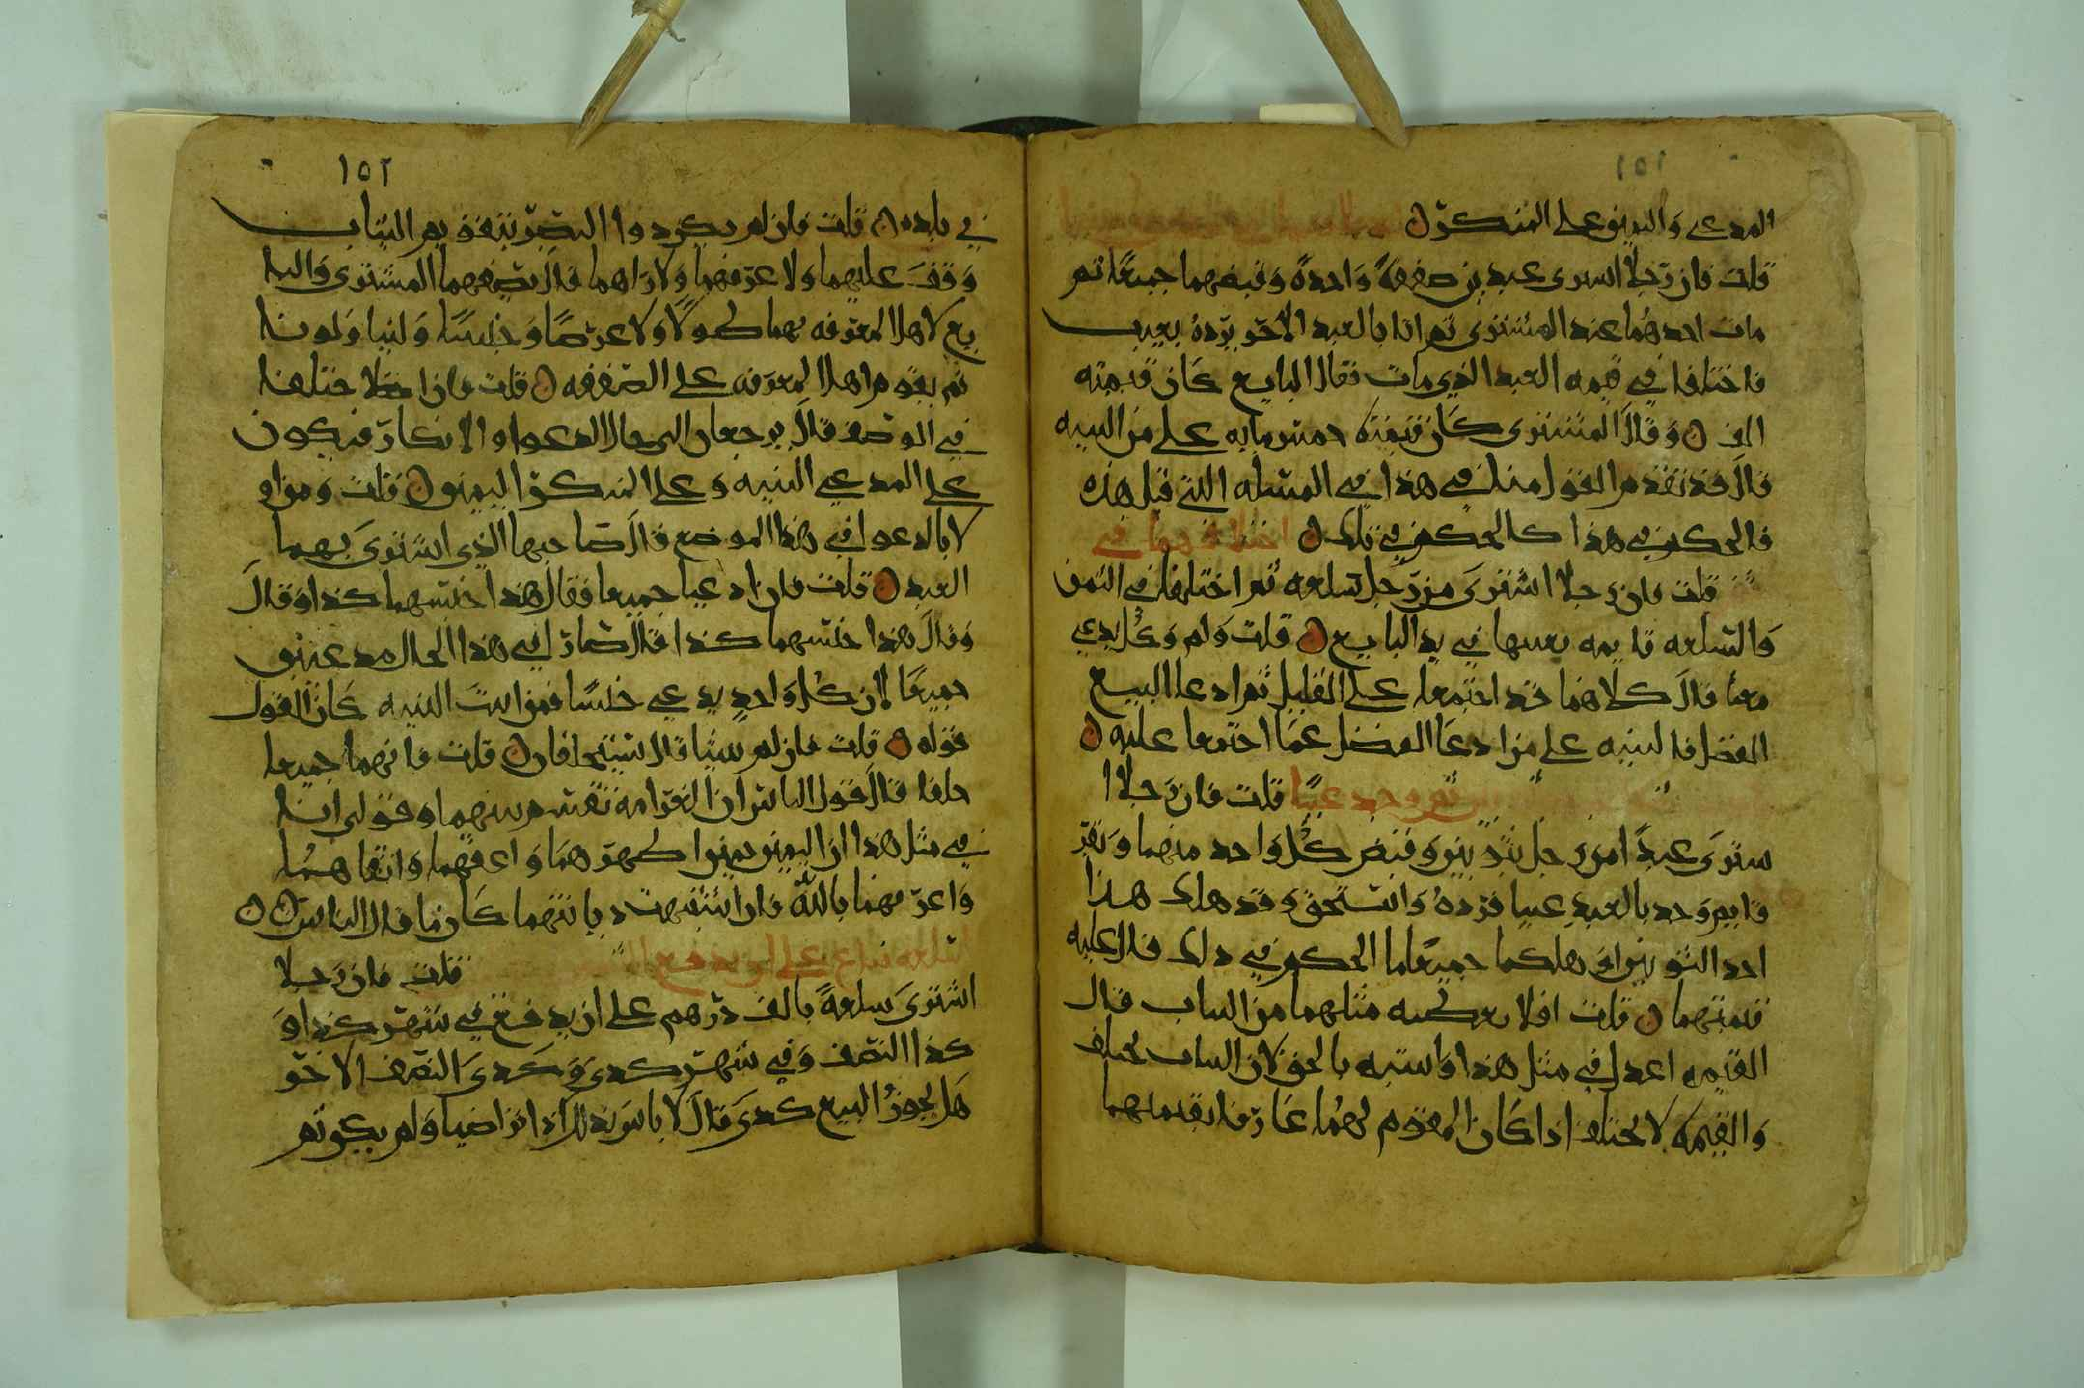 ١٥١
المدعي واليمين على المنكر ن
قلت فان رجلا اشترى عبدين صفقةً واحدةً وقبضهما جميعًا ثم
مات احدهما عند المشترى ثم اتا بالعبد الآخر يرده بعيب
فاختلفا في قيمه العبد الذي مات فقال البايع كان قيمته
الف ن وقال المشترى كان قيمته خمس مايه على من البينه
قال قد تقدم القول منا في هذا في المسئله التي قبل هذه
فالحكم في هذا كالحكم في تلك ن اختلافهما في
قلت فان رجلا اشترى من رجل سلعه ثم اختلفا في الثمن
والسلعه قايمه بعينها في يد البايع ن قلت ولم وكل يدعي
معنا قال كلاهما قد اجتمعا على القليل ثم ادعا البيع
الفضل فالبينه على من ادعا الفضل عما اجتمعا عليه ن
ثم وجد عيبًا قلت فان رجلا ا
شترى عبدًا من رجل بثوبين وقبض كل واحد منهما وتفر
قا ثم وجد بالعبد عيبا فرده واستحق وقد هلك هذا
احد الثوبين او هلكا جميعًا ما الحكم في ذلك قال عليه
قيمتهما ن قلت افلا يعطيه مثلهما من الثياب قال
القيمه اعدل في مثل هذا واشبه بالحق لان الثياب تختلف
والقيمه لا تختلف اذا كان المقوم لهما عارفا بقيمتهما
١٥٢
في بلده ن قلت فان لم يكن ذوا البصر بتقويم الثياب
وقف عليهما ولا عرفهما ولا راهما قال يصفهما المشترى والبا
يع لاهل المعرفه بهما طولًا ولا عرضًا وجنسًا ولينا ولونا
ثم يقوم اهل المعرفه على الصفه ن قلت فان اختلفا
في الوصف قال يرجعان الى حال الدعوا والانكار فيكون
على المدعي البينه وعلى المنكر اليمين ن قلت ومن او
لا بالدعوا في هذا الموضع قال صاحبها الذي اشترى بهما
العبد ن قلت فان ادعيا جميعا فقال هذا جنسهما كذا وقال
وقال هذا جنسهما كذا قال صارا في هذا الحال مدعيين
جميعًا لان كل واحدٍ يدعي جنسًا فمن اثبت البينه كان القول
قوله ن قلت فان لم يبينا قال يستحلفان ن قلت فانهما جميعا
حلفا قال قول الناس ان الغرامه تقسم بينهما وقولى انا
في مثل هذا ان اليمين يمين اطهرهما واعفهما واتقاهما
واعرفهما بالله فان اشتبهت ديانتهما كان ما قال الناس ن ن
السلعه تباع على ان يدفع
قلت فان رجلا
اشترى سلعةً بالف درهم على ان يدفع في شهر كذا و
كذا النصف وفي شهر كدى وكدى النصف الاخر
هل يجوز البيع كدى قال لا باس بذلك اذا تراضيا ولم يكن ثم